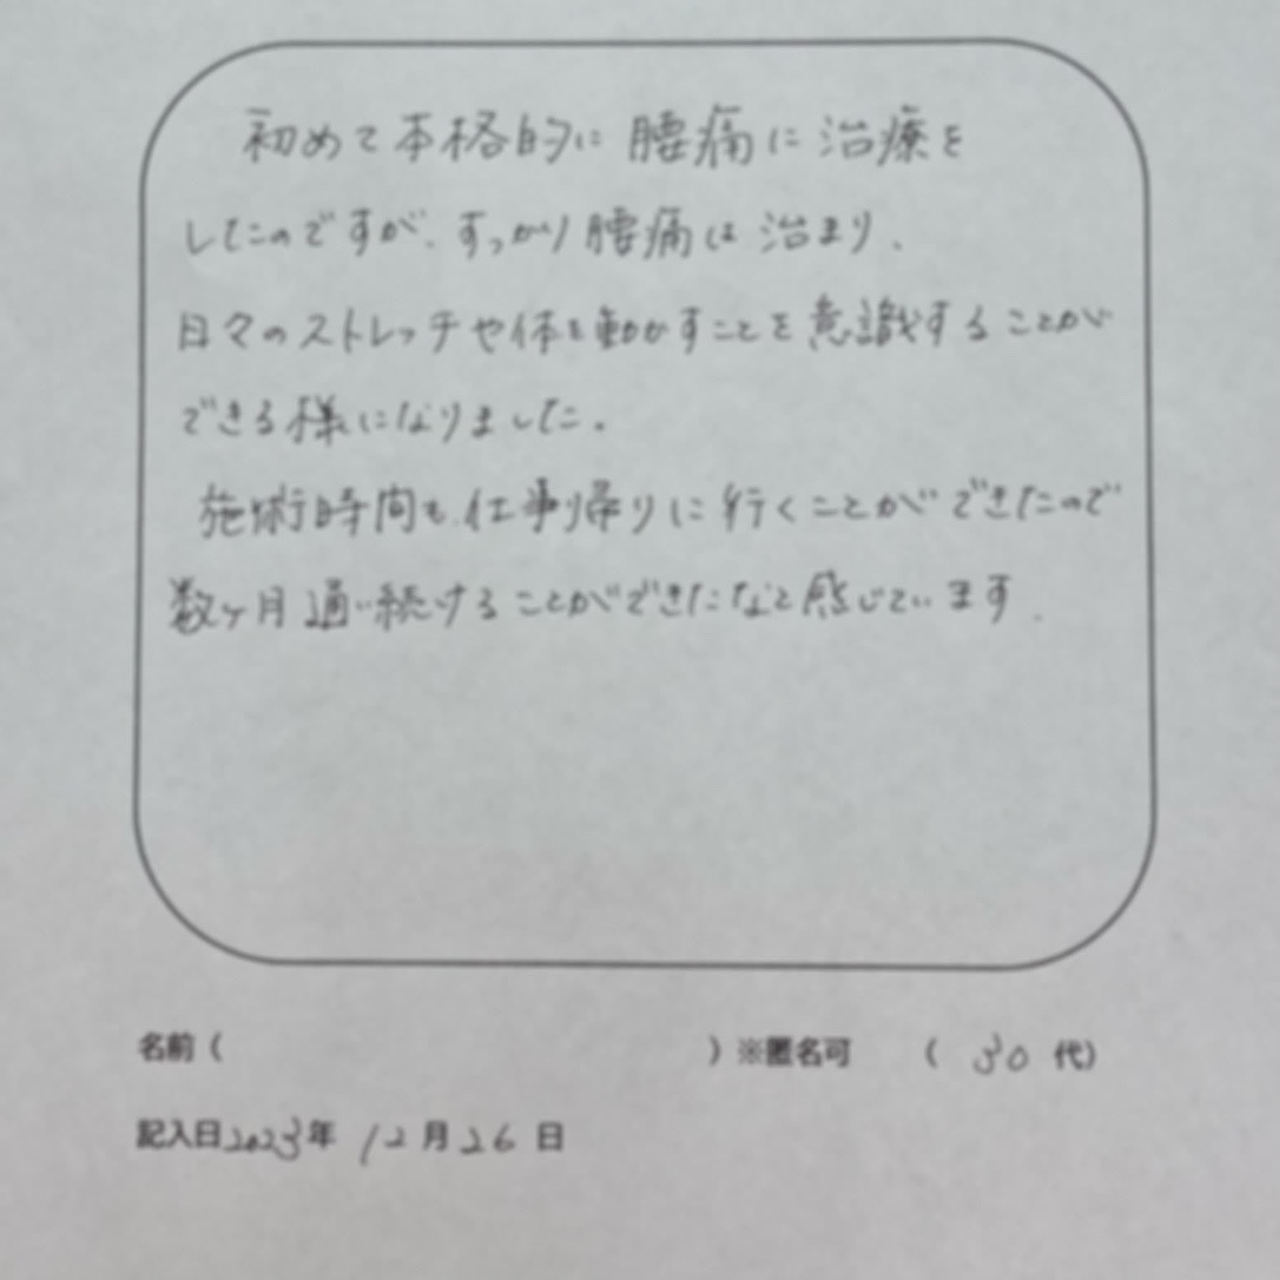 初めて本格的に腰痛に治療を
したのですが、すっかり腰痛は治まり、
日々のストレッチや体を動かすことを意識することが
できる様になりました。
施術時間も仕事帰りに行くことができたので
数ヶ月通い続けることができたなと感じています.
名前（ ）※匿名可 （ 30 代）
記入日2023年 12月26日